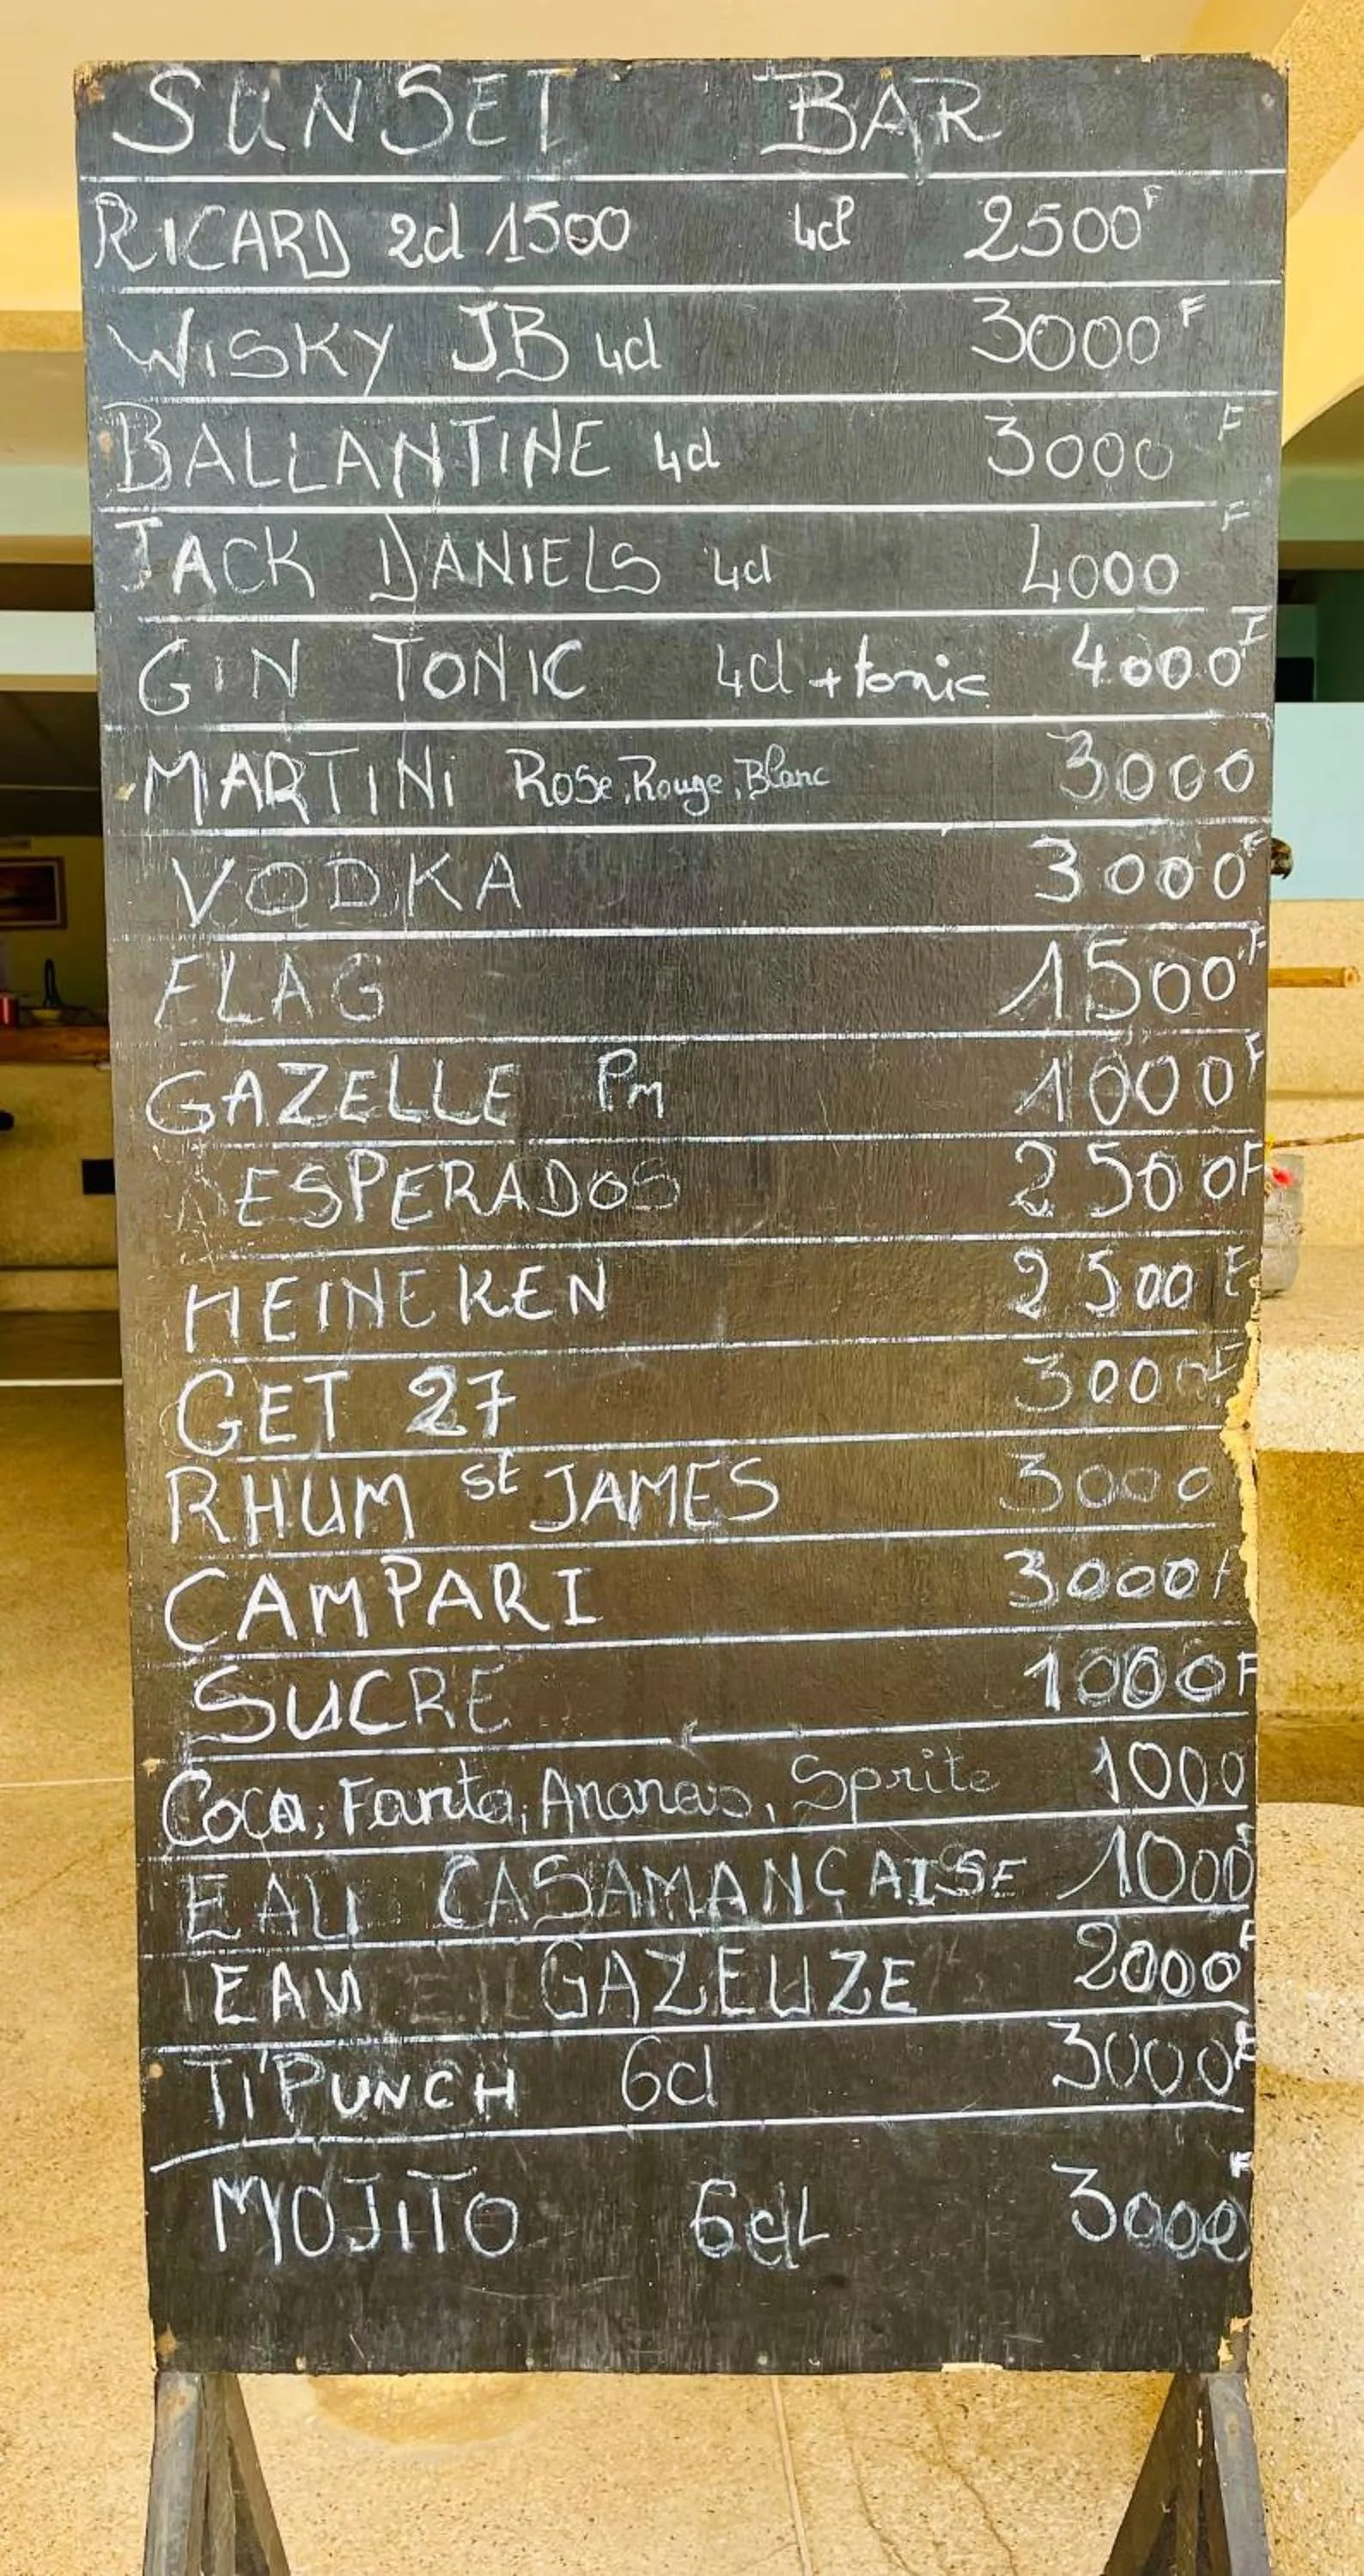 SUNSET BAR
RICARD 2cl 1500 4cl 2500F
WISKY JB 4cl 3000F
BALLANTINE 4cl 3000F
JACK DANIELS 4cl 4000F
GIN TONIC 4cl + tonic 4000F
MARTINI Rose, Rouge, Blanc 3000
VODKA 3000F
FLAG 1500F
GAZELLE Pm 1000F
ESPERADOS 2500F
HEINEKEN 2500F
GET 27 3000F
RHUM St JAMES 3000
CAMPARI 3000F
SUCRE 1000F
Coca, Fanta, Ananas, Sprite 1000
EAU CASAMANÇAISE 1000F
EAU GAZEUZE 2000F
TI'PUNCH 6cl 3000F
MOJITO 6cL 3000F